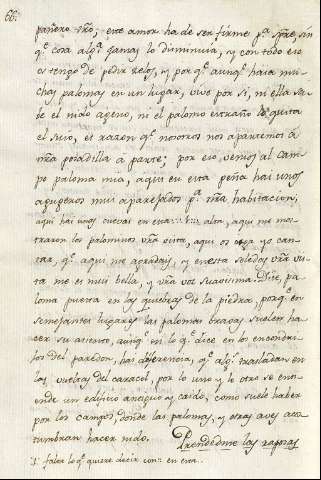 66.
pañero vro; este amor ha de ser firme pª spre, sin
q̃ cosa algª jamas lo disminuia, y con todo eso
os tengo de pedir zelos, y porq̃ aunq̃ haia mu-
chas palomas en un lugar, vive por si, ni ella sa-
be el nido ageno, ni el palomo extraño le quita
el suio, es razon q̃ nosotros nos apartemos â
nra posadilla a parte; por eso, venios al cam-
po paloma mia, aqui en esta peña hai unos
agugeros mui aparejados pª nra habitacion;
aqui hai unas cuevas en esta alta, aqui me mos-
traron los palominos vra vista, aqui os oyga yo can-
tar, q̃ aqui me agradais, y en esta soledad vra vis-
ta me es mui bella, y vra voz suavisima. Dice, pa-
loma puesta en las quiebras de la piedra, porq̃ en
semejantes lugares las palomas bravas suelen ha-
cer su asiento, aunq̃ en lo q̃ dice en los escondri-
jos del paredon, hai diferencia, q̃ algˢ trasladan en
las vueltas del caracol, por lo uno y lo otro se en-
tiende un edificio antiguo y caido, como suele haber
por los campos, donde las palomas, y otras aves acos-
tumbran hacer nido. Prendedme las raposas
falta lo q̃ quiere decir con en esta.